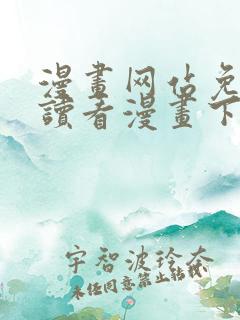 漫畫网佔免
讀者漫畫下
宇智波玲奈
未经同意禁止转载